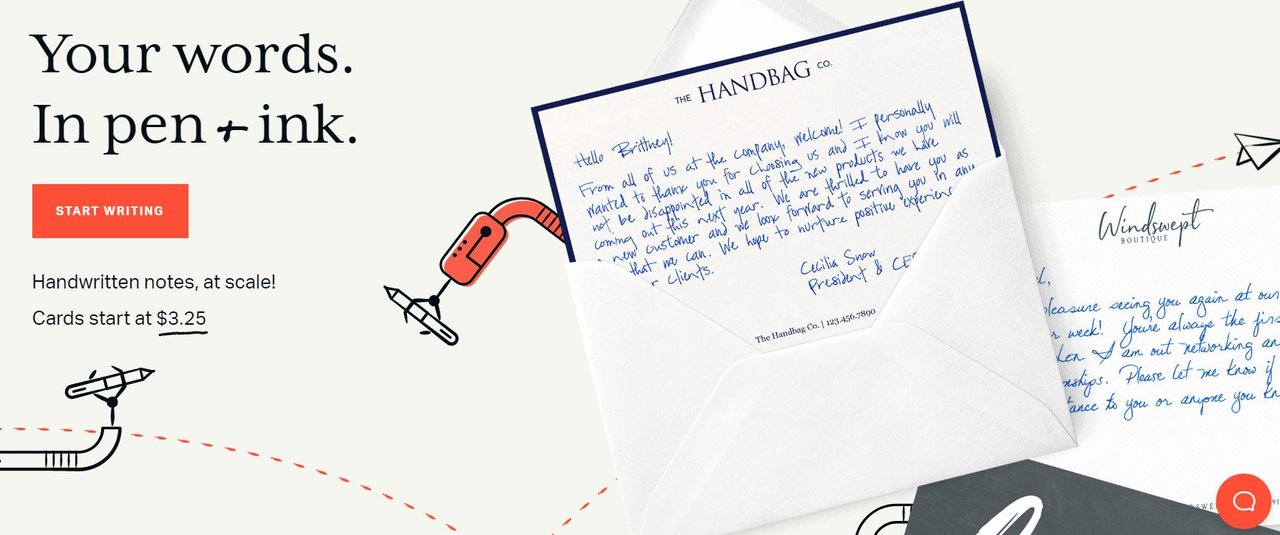 Your words.
In pen + ink.
START WRITING
Handwritten notes, at scale!
Cards start at $3.25
THE HANDBAG CO.
Hello Brittney!
From all of us at the company, welcome! I personally
wanted to thank you for choosing us and I know you will
not be disappointed in all of the new products we have
coming out this next year. We are thrilled to have you as
new customer and we look forward to serving you in any
that we can. We hope to nurture positive
clients.
Cecilia Snow
President &
The Handbag Co. | 123.456.7890
Windswept
BOUTIQUE
seeing you again at our
week! You're always the
I am out networking
Please let me know if
to you or anyone you